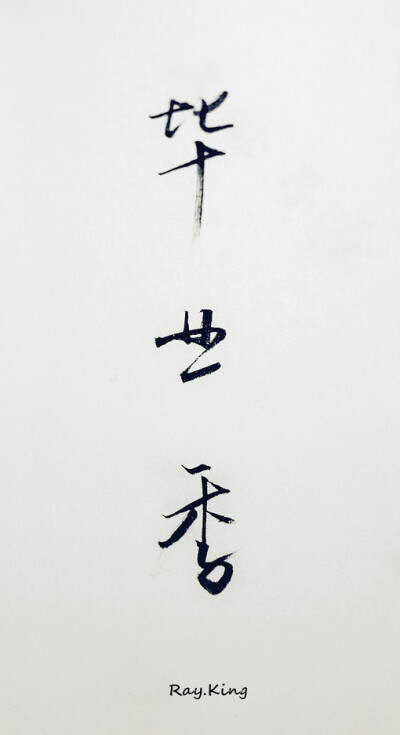 毕
业
季
Ray.King